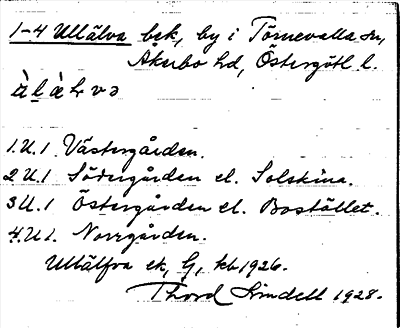 1-4 Ullälva bek, by i Törnevalla sn,
Åkerbo hd, Östergötl l.
1.U.1 Västergården.
2U.1 Södergården el. Solskina.
3U.1 Östergården el. Bostället.
4.U.1. Norrgården.
Ullälfva ek, G, kb 1926.
Thord Lindell 1928.